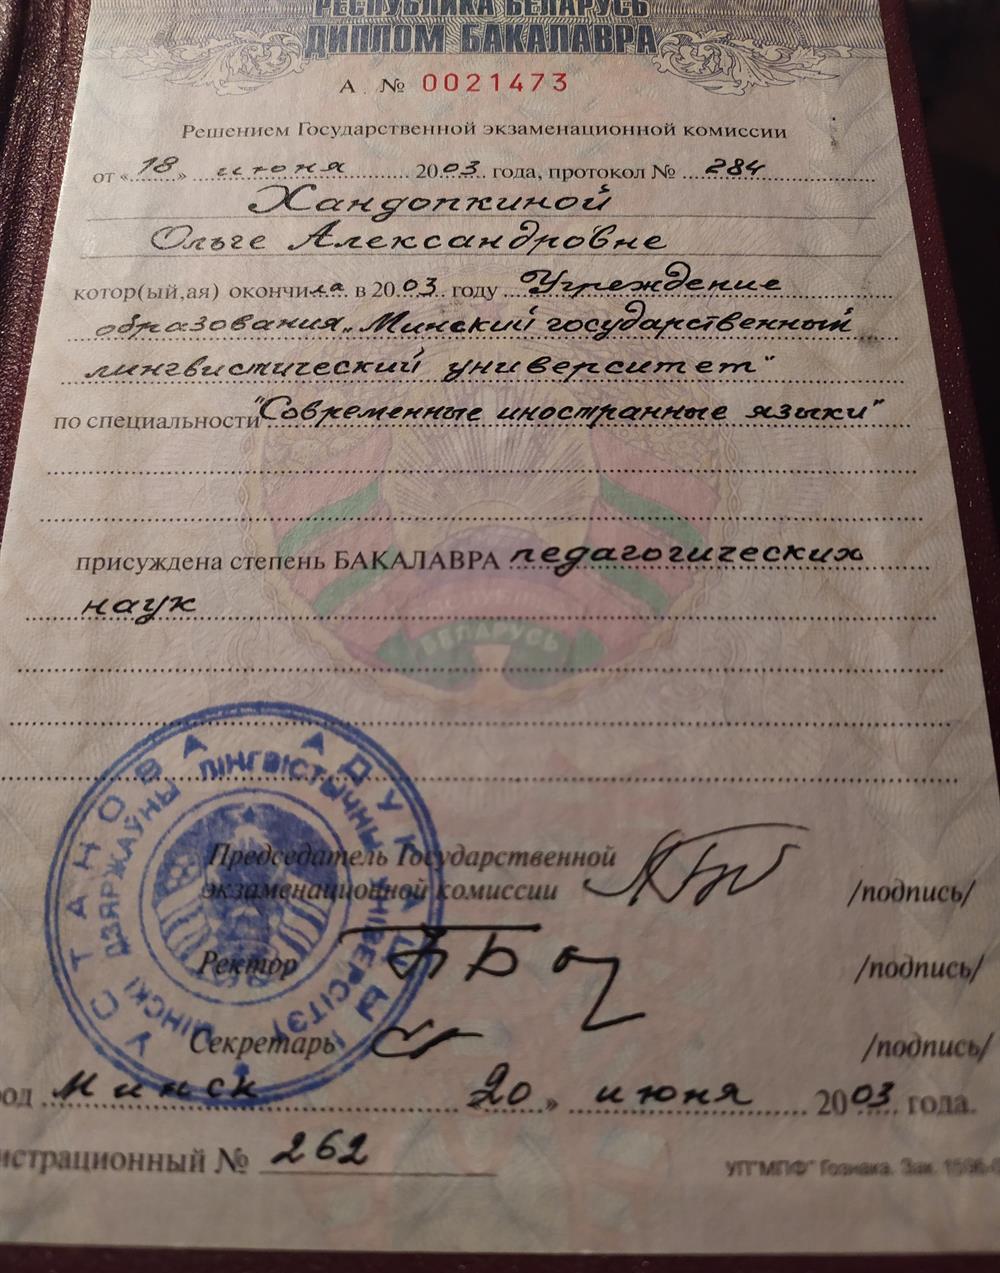 РЕСПУБЛИКА БЕЛАРУСЬ
ДИПЛОМ БАКАЛАВРА
А № 0021473
Решением Государственной экзаменационной комиссии
от «18» июня 2003 года, протокол № 284
Хандопкиной
Ольге Александровне
котор(ый,ая) окончила в 2003 году Учреждение
образования „Минский государственный
лингвистический университет"
по специальности "Современные иностранные языки"
присуждена степень БАКАЛАВРА педагогических
наук
БЕЛАРУСЬ
УСТАНОВА АДУКАЦЫІ
МІНСКІ ДЗЯРЖАЎНЫ ЛІНГВІСТЫЧНЫ УНІВЕРСІТЭТ
Председатель Государственной
экзаменационной комиссии /подпись/
Ректор /подпись/
Секретарь /подпись/
од Минск 20» июня 2003 года.
истрационный № 262
УП"МПФ" Гознака. Зак.